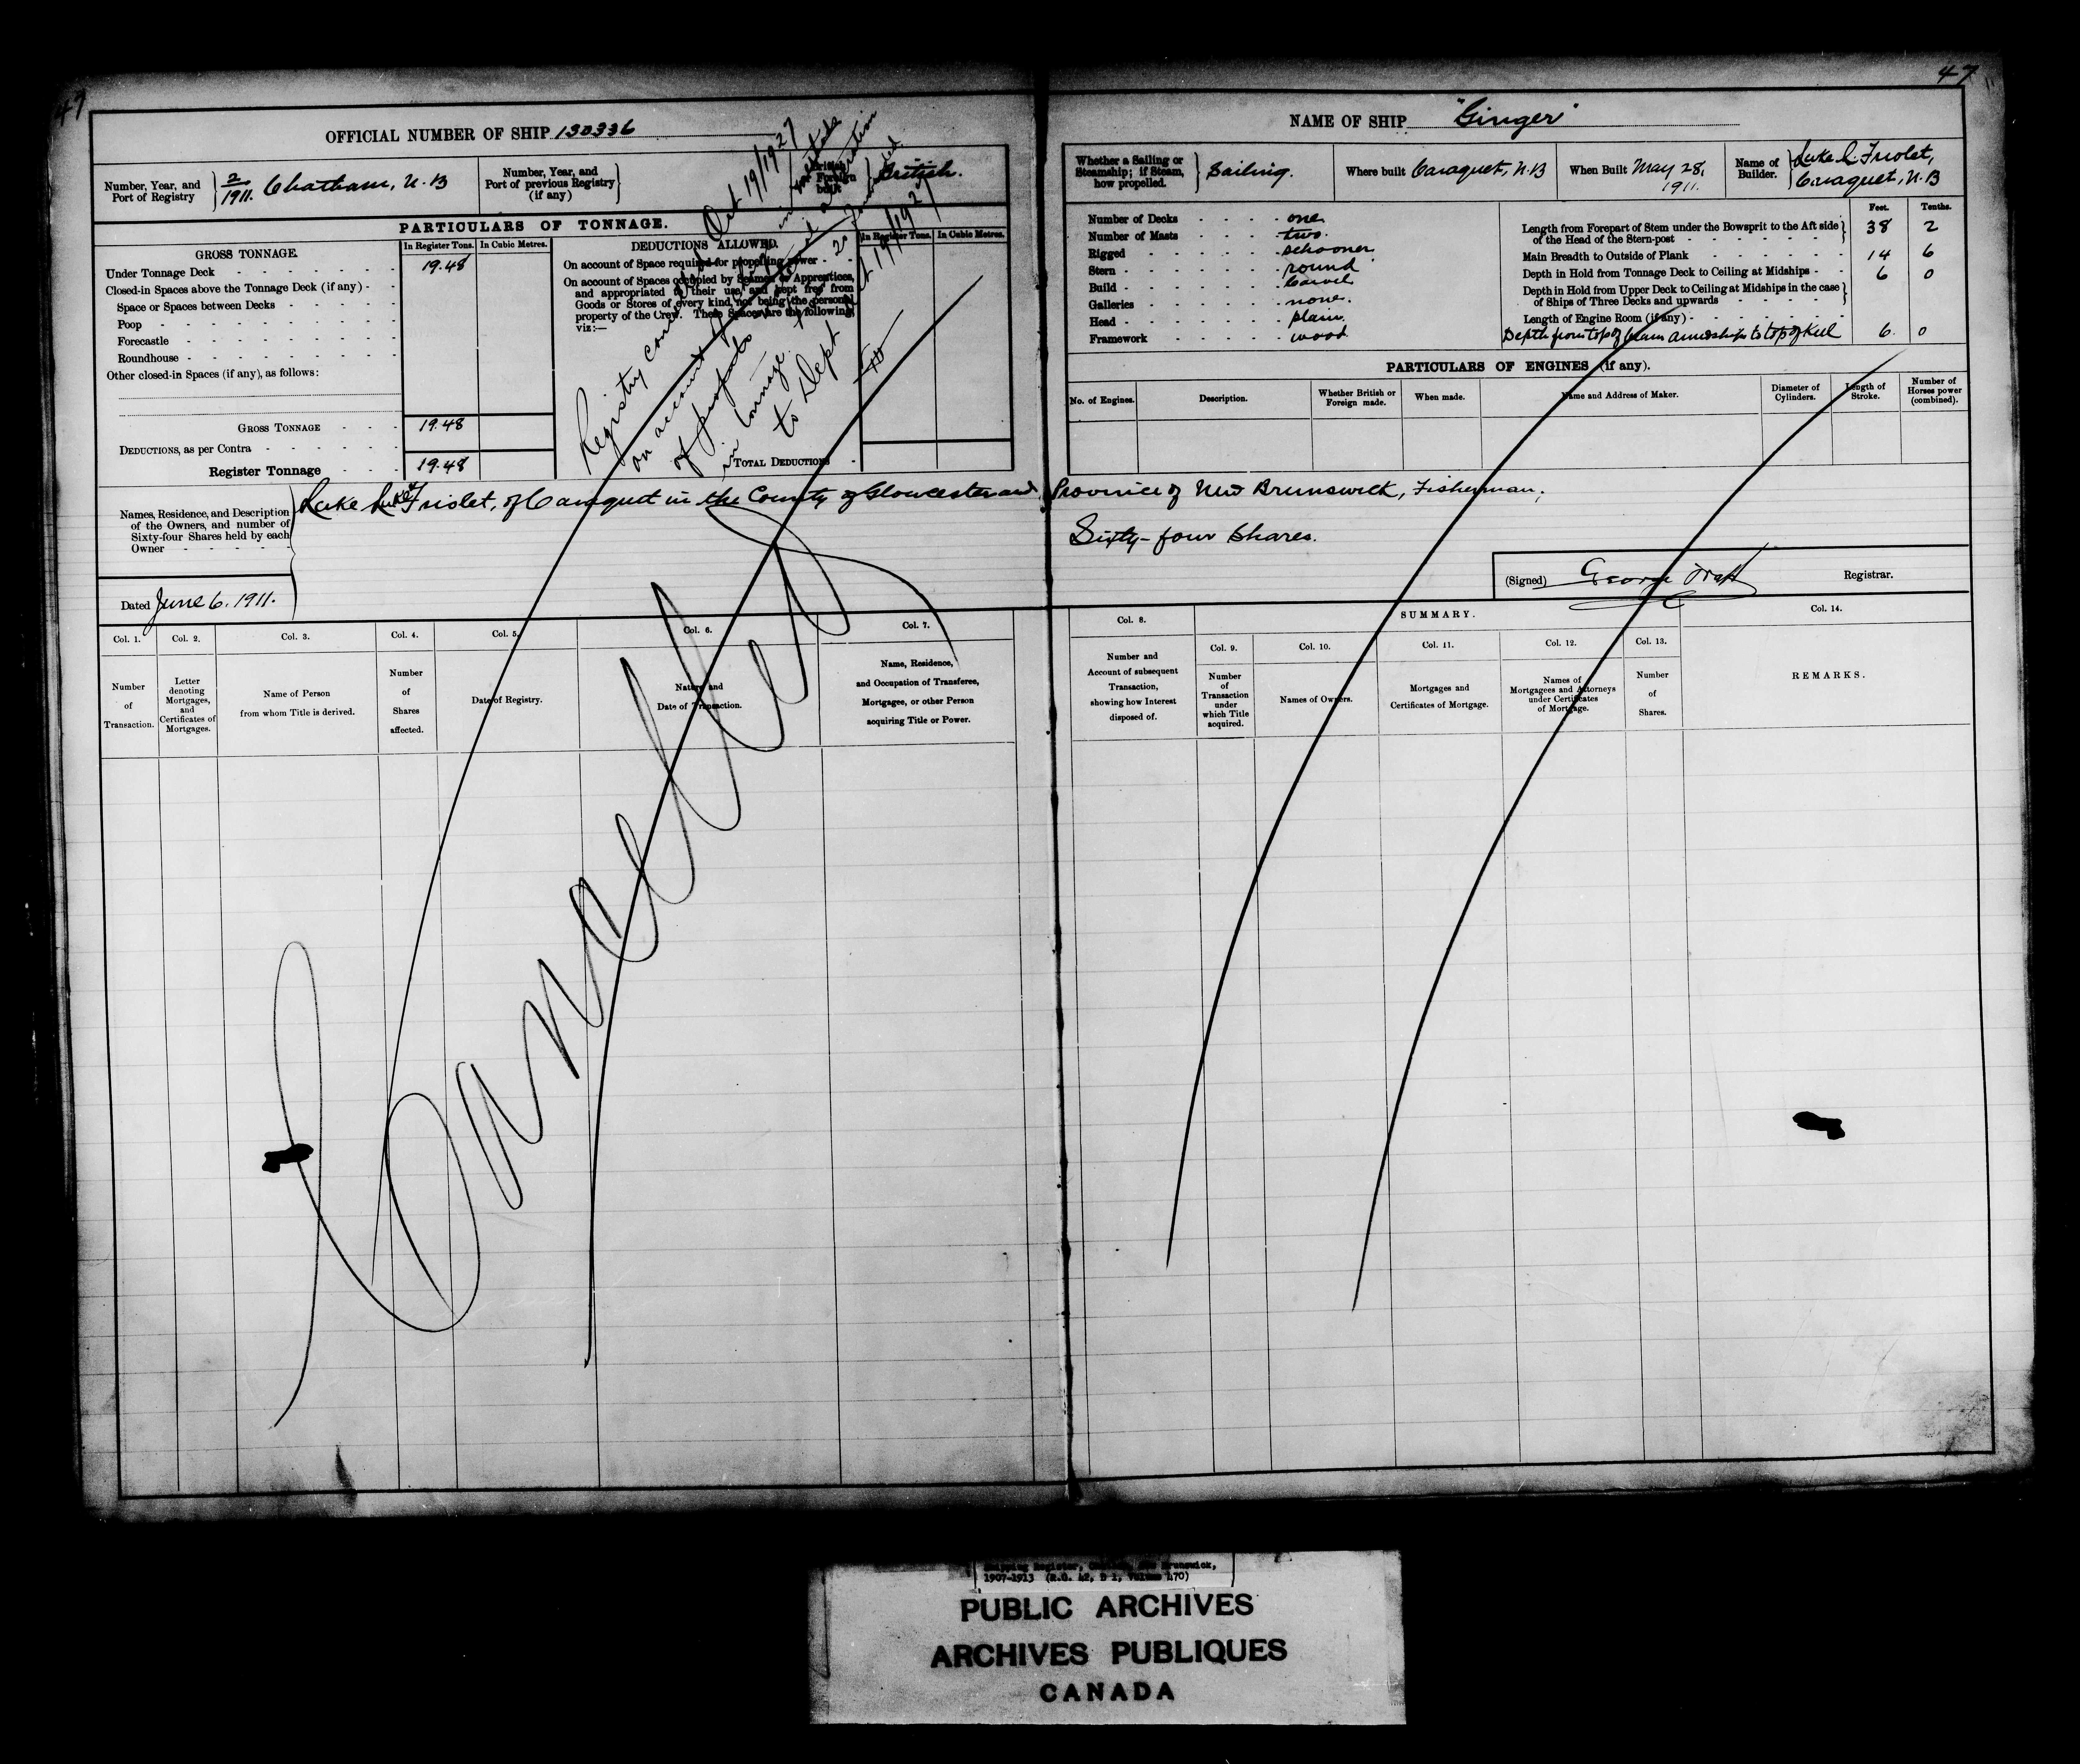 47
47
OFFICIAL NUMBER OF SHIP 130336
NAME OF SHIP "Ginger"
Number, Year, and Port of Registry
2/1911. Chatham, N.B
Number, Year, and Port of previous Registry (if any)
British or Foreign built
British.
Whether a Sailing or Steamship; if Steam, how propelled.
Sailing.
Where built Caraquet, N.B
When Built May 28, 1911.
Name of Builder.
Luke L Friolet, Caraquet, N.B
PARTICULARS OF TONNAGE.
GROSS TONNAGE.
In Register Tons.
In Cubic Metres.
Under Tonnage Deck 19.48
Closed-in Spaces above the Tonnage Deck (if any)
Space or Spaces between Decks
Poop
Forecastle
Roundhouse
Other closed-in Spaces (if any), as follows:
GROSS TONNAGE 19.48
DEDUCTIONS, as per Contra
Register Tonnage 19.48
DEDUCTIONS ALLOWED.
In Register Tons.
In Cubic Metres.
On account of Space required for propelling power
On account of Spaces occupied by Seamen or Apprentices,
and appropriated to their use, and kept free from
Goods or Stores of every kind, not being the personal
property of the Crew. These Spaces are the following,
viz:—
TOTAL DEDUCTIONS
Oct 19/1927
Registry
on account
of
in tonnage.
to Dept
Number of Decks one
Number of Masts two.
Rigged schooner
Stern round
Build Carvel
Galleries none.
Head plain.
Framework wood
Feet. Tenths.
Length from Forepart of Stem under the Bowsprit to the Aft side of the Head of the Stern-post 38 2
Main Breadth to Outside of Plank 14 6
Depth in Hold from Tonnage Deck to Ceiling at Midships 6 0
Depth in Hold from Upper Deck to Ceiling at Midships in the case of Ships of Three Decks and upwards
Length of Engine Room (if any)
Depth from top of beam amidships to top of Keel 6. 0
PARTICULARS OF ENGINES (if any).
No. of Engines.
Description.
Whether British or Foreign made.
When made.
Name and Address of Maker.
Diameter of Cylinders.
Length of Stroke.
Number of Horses power (combined).
Names, Residence, and Description
of the Owners, and number of
Sixty-four Shares held by each
Owner
Luke Friolet, of Caraquet in the County of Gloucester and Province of New Brunswick, Fisherman,
Sixty-four Shares.
Dated June 6. 1911.
(Signed) George Registrar.
Cancelled
SUMMARY.
Col. 1.
Number of Transaction.
Col. 2.
Letter denoting Mortgages, and Certificates of Mortgages.
Col. 3.
Name of Person from whom Title is derived.
Col. 4.
Number of Shares affected.
Col. 5.
Date of Registry.
Col. 6.
Nature and Date of Transaction.
Col. 7.
Name, Residence, and Occupation of Transferee, Mortgagee, or other Person acquiring Title or Power.
Col. 8.
Number and Account of subsequent Transaction, showing how Interest disposed of.
Col. 9.
Number of Transaction under which Title acquired.
Col. 10.
Names of Owners.
Col. 11.
Mortgages and Certificates of Mortgage.
Col. 12.
Names of Mortgagees and Attorneys under Certificates of Mortgage.
Col. 13.
Number of Shares.
Col. 14.
REMARKS.
Shipping Register, Chatham, New Brunswick,
1907-1913 (R.G. 42, D 1, Volume 470)
PUBLIC ARCHIVES
ARCHIVES PUBLIQUES
CANADA